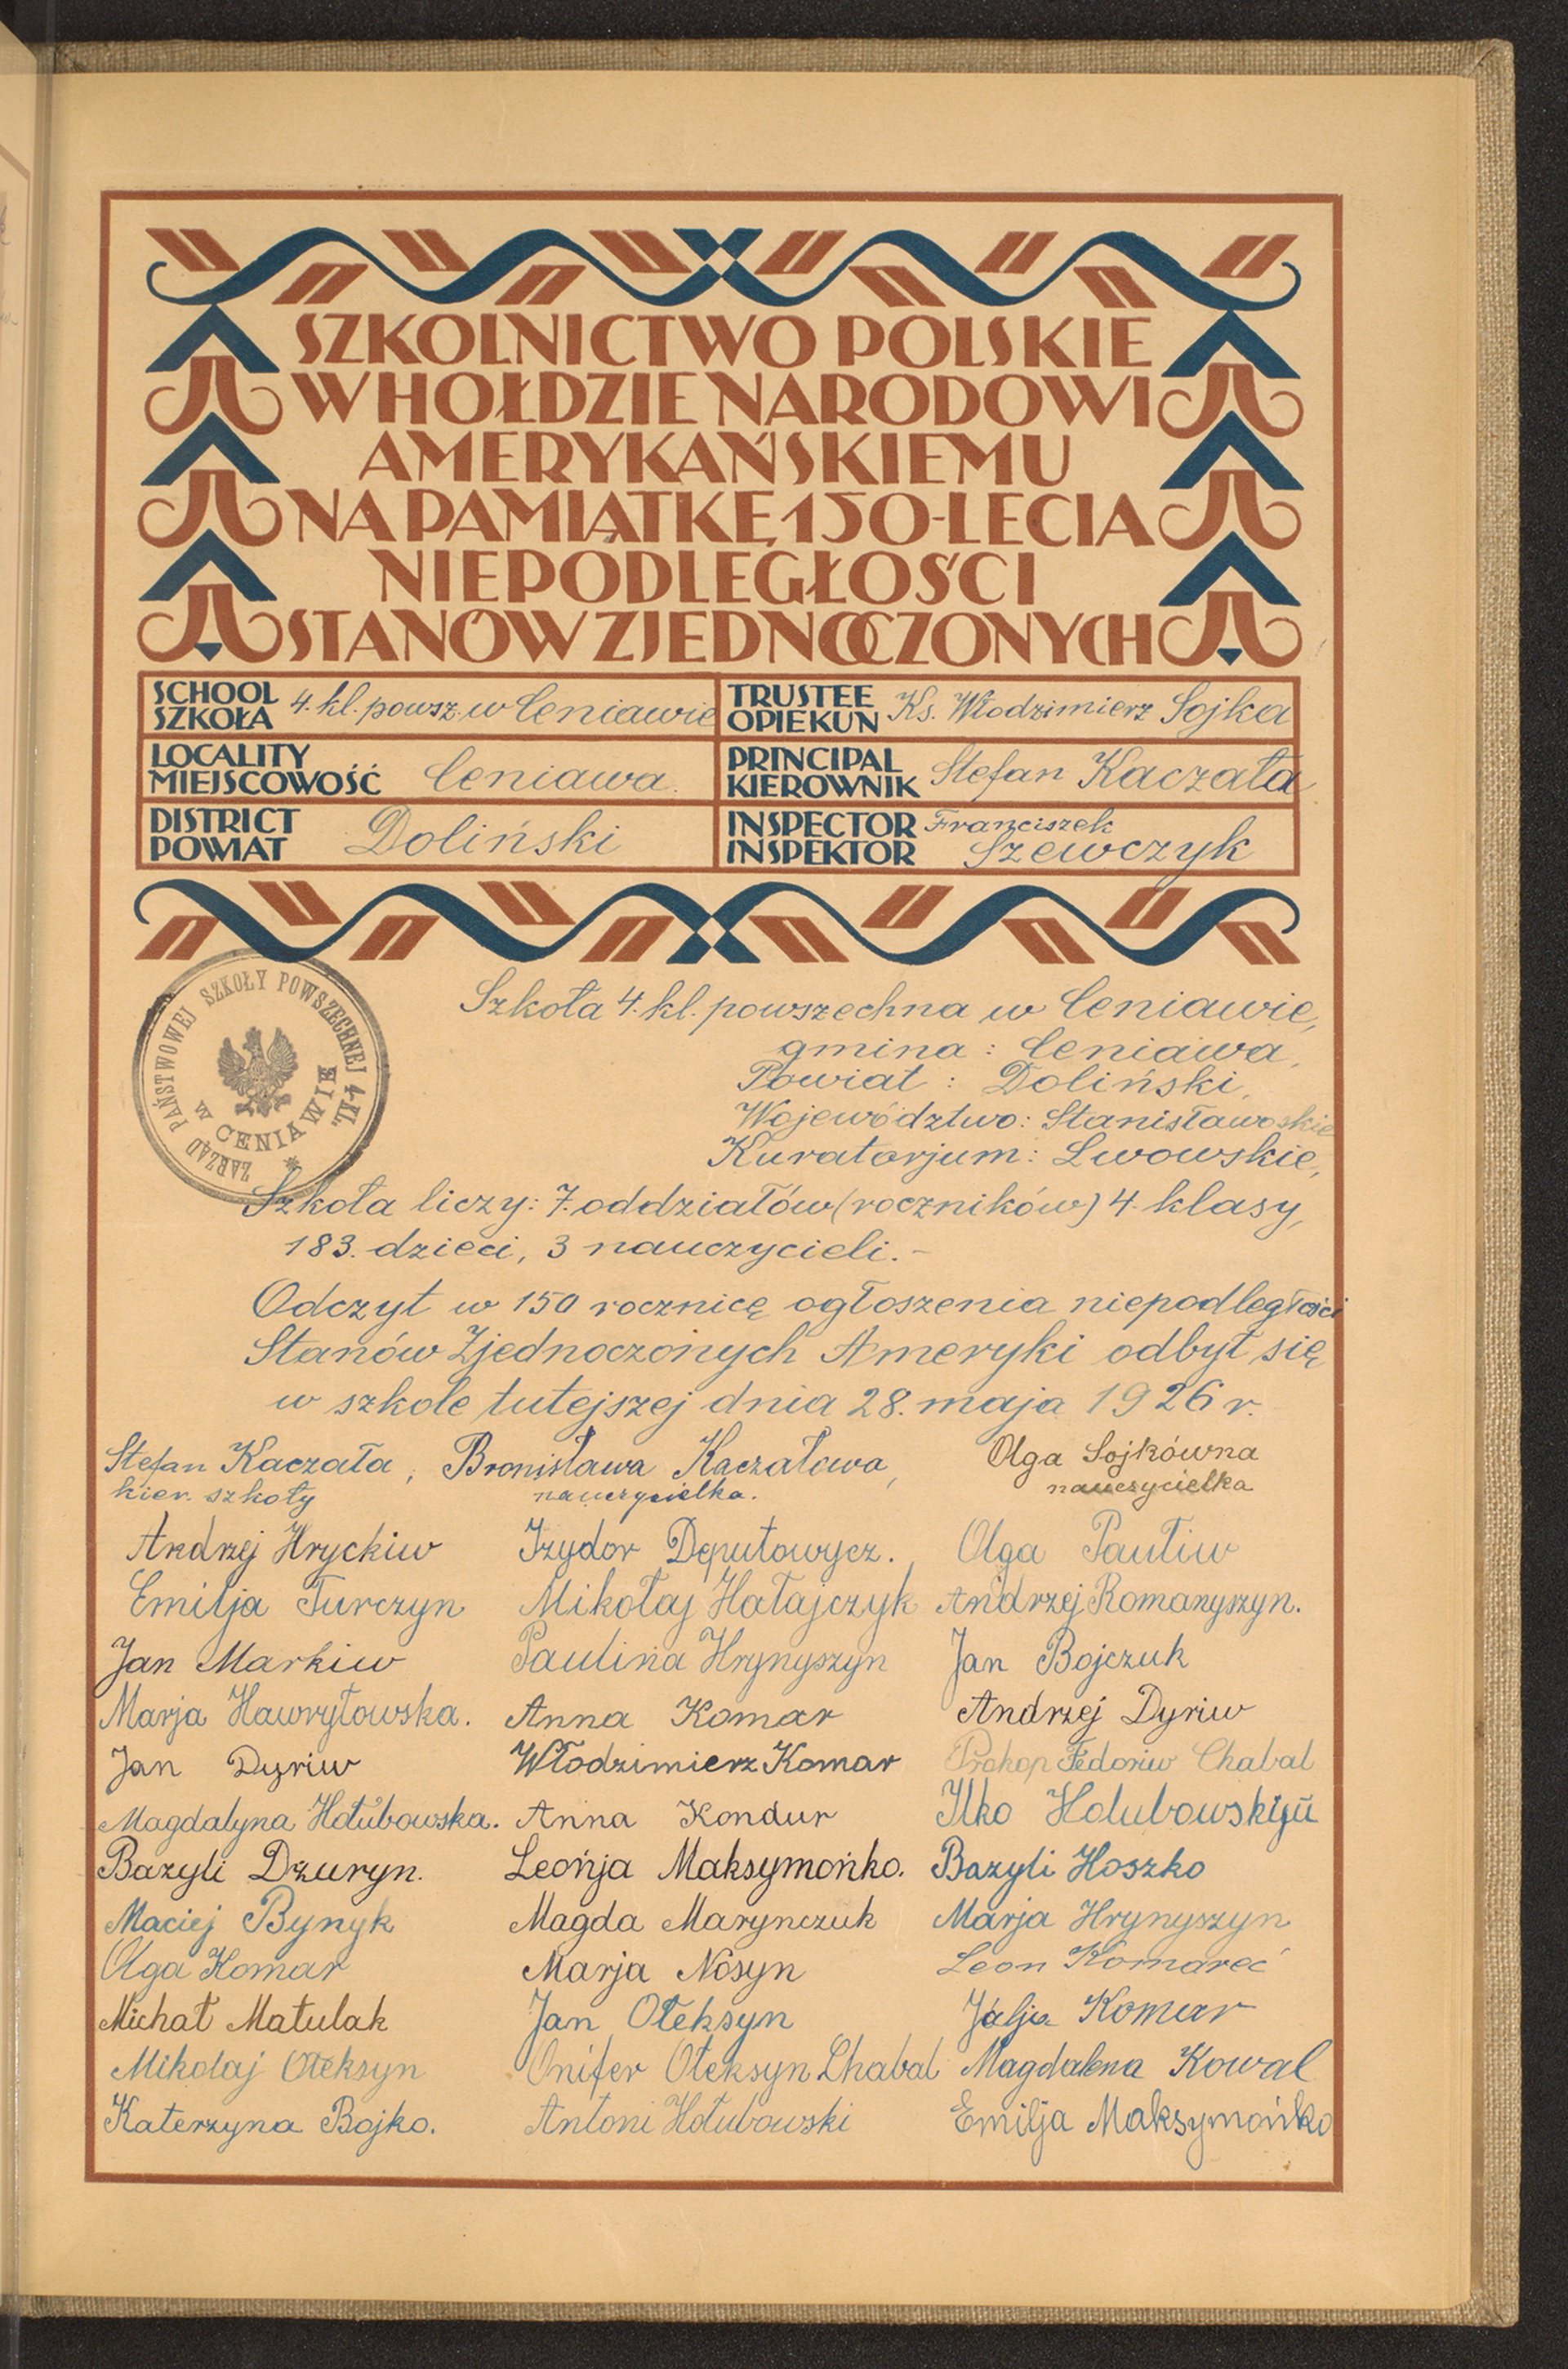 SZKOLNICTWO POLSKIE
W HOŁDZIE NARODOWI
AMERYKAŃSKIEMU
NA PAMIĄTKĘ 150-LECIA
NIEPODLEGŁOŚCI
STANÓW ZJEDNOCZONYCH
SCHOOL
SZKOŁA 4. kl. powsz. w Ceniawie
TRUSTEE
OPIEKUN Ks. Włodzimierz Sojka
LOCALITY
MIEJSCOWOŚĆ Ceniawa.
PRINCIPAL
KIEROWNIK Stefan Kaczała
DISTRICT
POWIAT Doliński
INSPECTOR Franciszek
INSPEKTOR Szewczyk
ZARZĄD PAŃSTWOWEJ SZKOŁY POWSZECHNEJ 4-KL.
W CENIAWIE
Szkoła 4. kl. powszechna w Ceniawie,
gmina: Ceniawa,
Powiat: Doliński,
Województwo: Stanisławoskie
Kuratorjum: Lwowskie,
Szkoła liczy: 7. oddziałów (roczników) 4. klasy,
183. dzieci, 3 nauczycieli. –
Odczyt w 150 rocznicę ogłoszenia niepodległości
Stanów Zjednoczonych Ameryki odbył się
w szkole tutejszej dnia 28. maja 1926 r.
Stefan Kaczała, Bronisława Kaczałowa, Olga Sojkówna
kier. szkoły nauczycielka. nauczycielka
Andrzej Hryckiw Izydor Deputowycz. Olga Pauliw
Emilja Turczyn Mikołaj Hałajczyk Andrzej Romanyszyn.
Jan Markiw Paulina Hrynyszyn Jan Bojczuk
Marja Hawryłowska. Anna Komar Andrzej Dyriw
Jan Dyriw Włodzimierz Komar Prokop Fedoriw Chabal
Magdalyna Hołubowska. Anna Kondur Ilko Holubowskyij
Bazyli Dzuryn. Leońja Maksymońko. Bazyli Hoszko
Maciej Bynyk Magda Marynczuk Marja Hrynyszyn
Olga Komar Marja Nosyn Leon Komareć
Michał Matulak Jan Ołeksyn Julja Komar
Mikolaj Ołeksyn Onifer Ołeksyn Chabal Magdalena Kowal
Katerzyna Bojko. Antoni Hołubowski Emilja Maksymońko